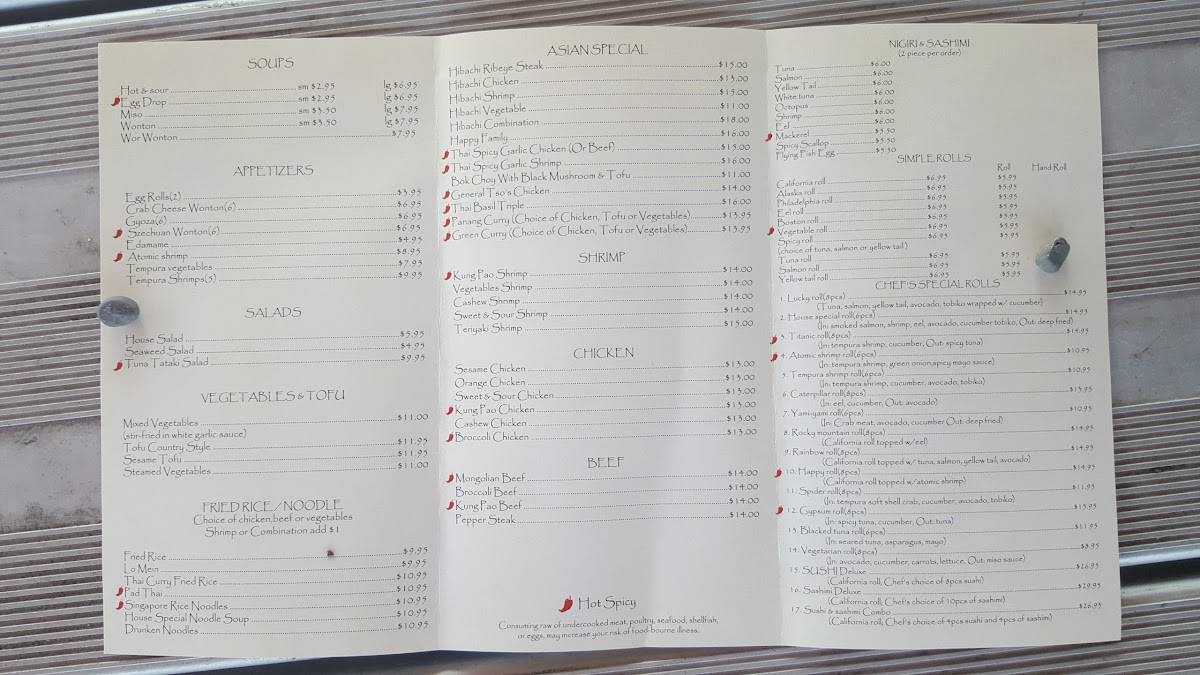 SOUPS
Hot & sour sm $2.95 lg $6.95
Egg Drop sm $2.95 lg $6.95
Miso sm $3.50 lg $7.95
Wonton sm $3.50 lg $7.95
Wor Wonton $7.95
APPETIZERS
Egg Rolls(2) $3.95
Crab Cheese Wonton(6) $6.95
Gyoza(6) $6.95
Szechuan Wonton(6) $6.95
Edamame $4.95
Atomic shrimp $8.95
Tempura vegetables $7.95
Tempura Shrimps(5) $9.95
SALADS
House Salad $5.95
Seaweed Salad $4.95
Tuna Tataki Salad $9.95
VEGETABLES & TOFU
Mixed Vegetables $11.00
(stir-fried in white garlic sauce)
Tofu Country Style $11.95
Sesame Tofu $11.95
Steamed Vegetables $11.00
FRIED RICE / NOODLE
Choice of chicken,beef or vegetables
Shrimp or Combination add $1
Fried Rice $9.95
Lo Mein $9.95
Thai Curry Fried Rice $10.95
Pad Thai $10.95
Singapore Rice Noodles $10.95
House Special Noodle Soup $10.95
Drunken Noodles $10.95
ASIAN SPECIAL
Hibachi Ribeye Steak $15.00
Hibachi Chicken $13.00
Hibachi Shrimp $15.00
Hibachi Vegetable $11.00
Hibachi Combination $18.00
Happy Family $16.00
Thai Spicy Garlic Chicken (Or Beef) $15.00
Thai Spicy Garlic Shrimp $16.00
Bok Choy With Black Mushroom & Tofu $11.00
General Tso's Chicken $14.00
Thai Basil Triple $16.00
Panang Curry (Choice of Chicken, Tofu or Vegetables) $13.95
Green Curry (Choice of Chicken, Tofu or Vegetables) $13.95
SHRIMP
Kung Pao Shrimp $14.00
Vegetables Shrimp $14.00
Cashew Shrimp $14.00
Sweet & Sour Shrimp $14.00
Teriyaki Shrimp $15.00
CHICKEN
Sesame Chicken $13.00
Orange Chicken $13.00
Sweet & Sour Chicken $13.00
Kung Pao Chicken $13.00
Cashew Chicken $13.00
Broccoli Chicken $13.00
BEEF
Mongolian Beef $14.00
Broccoli Beef $14.00
Kung Pao Beef $14.00
Pepper Steak $14.00
Hot Spicy
Consuming raw of undercooked meat, poultry, seafood, shellfish,
or eggs, may increase your risk of food-bourne illness.
NIGIRI & SASHIMI
(2 piece per order)
Tuna $6.00
Salmon $6.00
Yellow Tail $6.00
White tuna $6.00
Octopus $6.00
Shrimp $6.00
Eel $6.00
Mackerel $5.50
Spicy Scallop $5.50
Flying Fish Egg $5.50
SIMPLE ROLLS
Roll Hand Roll
California roll $6.95 $5.95
Alaska roll $6.95 $5.95
Philadelphia roll $6.95 $5.95
Eel roll $6.95 $5.95
Boston roll $6.95 $5.95
Vegetable roll $6.95 $5.95
Spicy roll $6.95 $5.95
(choice of tuna, salmon or yellow tail)
Tuna roll $6.95 $5.95
Salmon roll $6.95 $5.95
Yellow tail roll $6.95 $5.95
CHEF'S SPECIAL ROLLS
1. Lucky roll(8pcs) $14.95
(Tuna, salmon, yellow tail, avocado, tobiko wrapped w/ cucumber)
2. House special roll(6pcs) $14.95
(In: smoked salmon, shrimp, eel, avocado, cucumber tobiko, Out: deep fried)
3. Titanic roll(8pcs) $14.95
(In: tempura shrimp, cucumber, Out: spicy tuna)
4. Atomic shrimp roll(6pcs) $10.95
(In: tempura shrimp, green onion,spicy mayo sauce)
5. Tempura shrimp roll(6pcs) $10.95
(In: tempura shrimp, cucumber, avocado, tobiko)
6. Caterpillar roll(8pcs) $13.95
(In: eel, cucumber, Out: avocado)
7. Yami-yami roll(6pcs) $10.95
(In: Crab meat, avocado, cucumber Out: deep fried)
8. Rocky mountain roll(8pcs) $14.95
(California roll topped w/eel)
9. Rainbow roll(8pcs) $14.95
(California roll topped w/ tuna, salmon, yellow tail, avocado)
10. Happy roll(8pcs) $14.95
(California roll topped w/atomic shrimp)
11. Spider roll(8pcs) $11.95
(In: tempura soft shell crab, cucumber, avocado, tobiko)
12. Gypsum roll(8pcs) $13.95
(In: spicy tuna, cucumber, Out: tuna)
13. Blacked tuna roll(6pcs) $11.95
(In: seared tuna, asparagus, mayo)
14. Vegetarian roll(8pcs) $8.95
(In: avocado, cucumber, carrots, lettuce, Out: miso sauce)
15. SUSHI Deluxe $26.95
(California roll, Chef's choice of 8pcs sushi)
16. Sashimi Deluxe $29.95
(California roll, Chef's choice of 10pcs of sashimi)
17. Sushi & sashimi Combo $26.95
(California roll, Chef's choice of 4pcs sushi and 4pcs of sashimi)